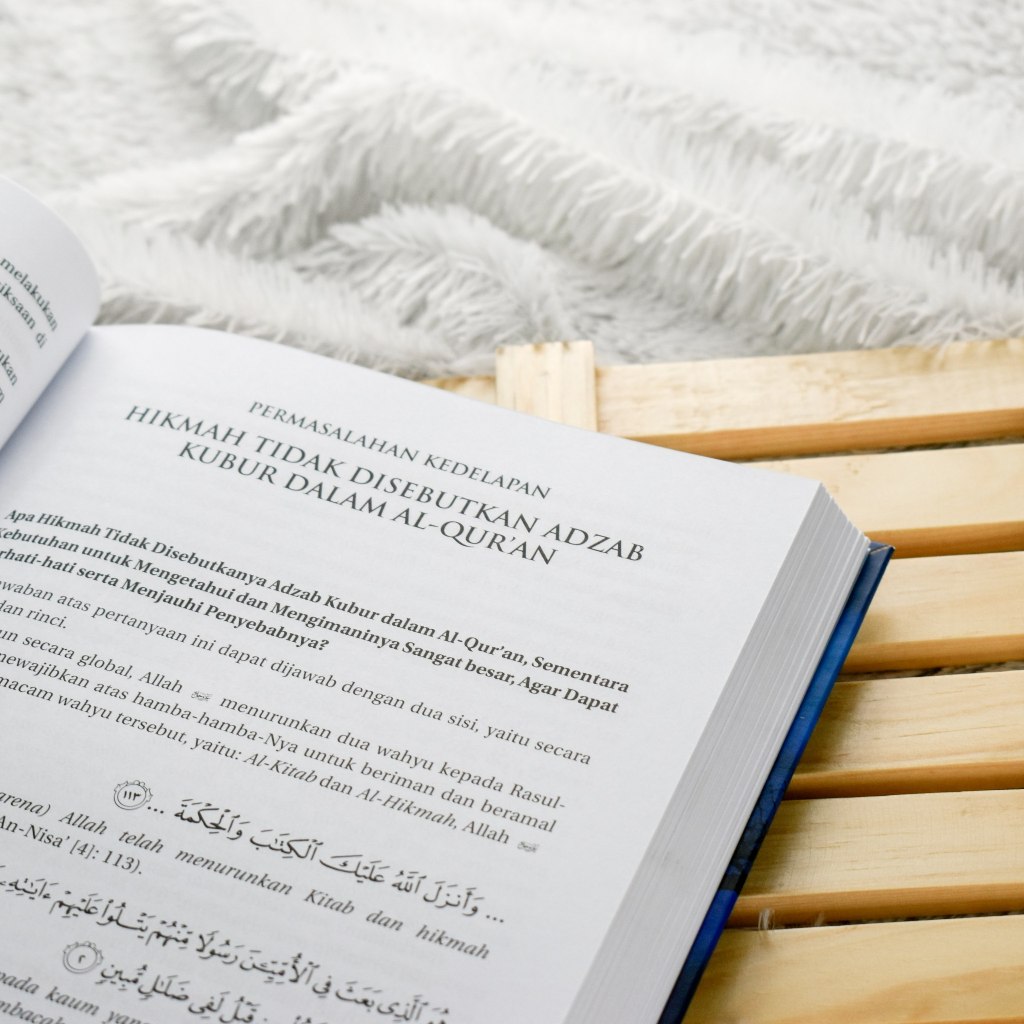 melakukan
di
PERMASALAHAN KEDELAPAN
HIKMAH TIDAK DISEBUTKAN ADZAB
KUBUR DALAM AL-QUR'AN
Apa Hikmah Tidak Disebutkanya Adzab Kubur dalam Al-Qur'an, Sementara
Kebutuhan untuk Mengetahui dan Mengimaninya Sangat besar, Agar Dapat
serta Menjauhi Penyebabnya?
atas pertanyaan ini dapat dijawab dengan dua sisi, yaitu secara
dan rinci.
secara global, Allah ﷻ menurunkan dua wahyu kepada Rasul-
atas hamba-hamba-Nya untuk beriman dan beramal
macam wahyu tersebut, yaitu: Al-Kitab dan Al-Hikmah, Allah ﷻ
... وَأَنزَلَ ٱللَّهُ عَلَيْكَ ٱلْكِتَٰبَ وَٱلْحِكْمَةَ ... ١١٣
Allah telah menurunkan Kitab dan hikmah
An-Nisa' [4]: 113).
ٱلَّذِى بَعَثَ فِى ٱلْأُمِّيِّـۧنَ رَسُولًا مِّنْهُمْ يَتْلُوا۟ عَلَيْهِمْ ءَايَٰتِهِۦ
قَبْلُ لَفِى ضَلَٰلٍ مُّبِينٍ ٢
kaum yang